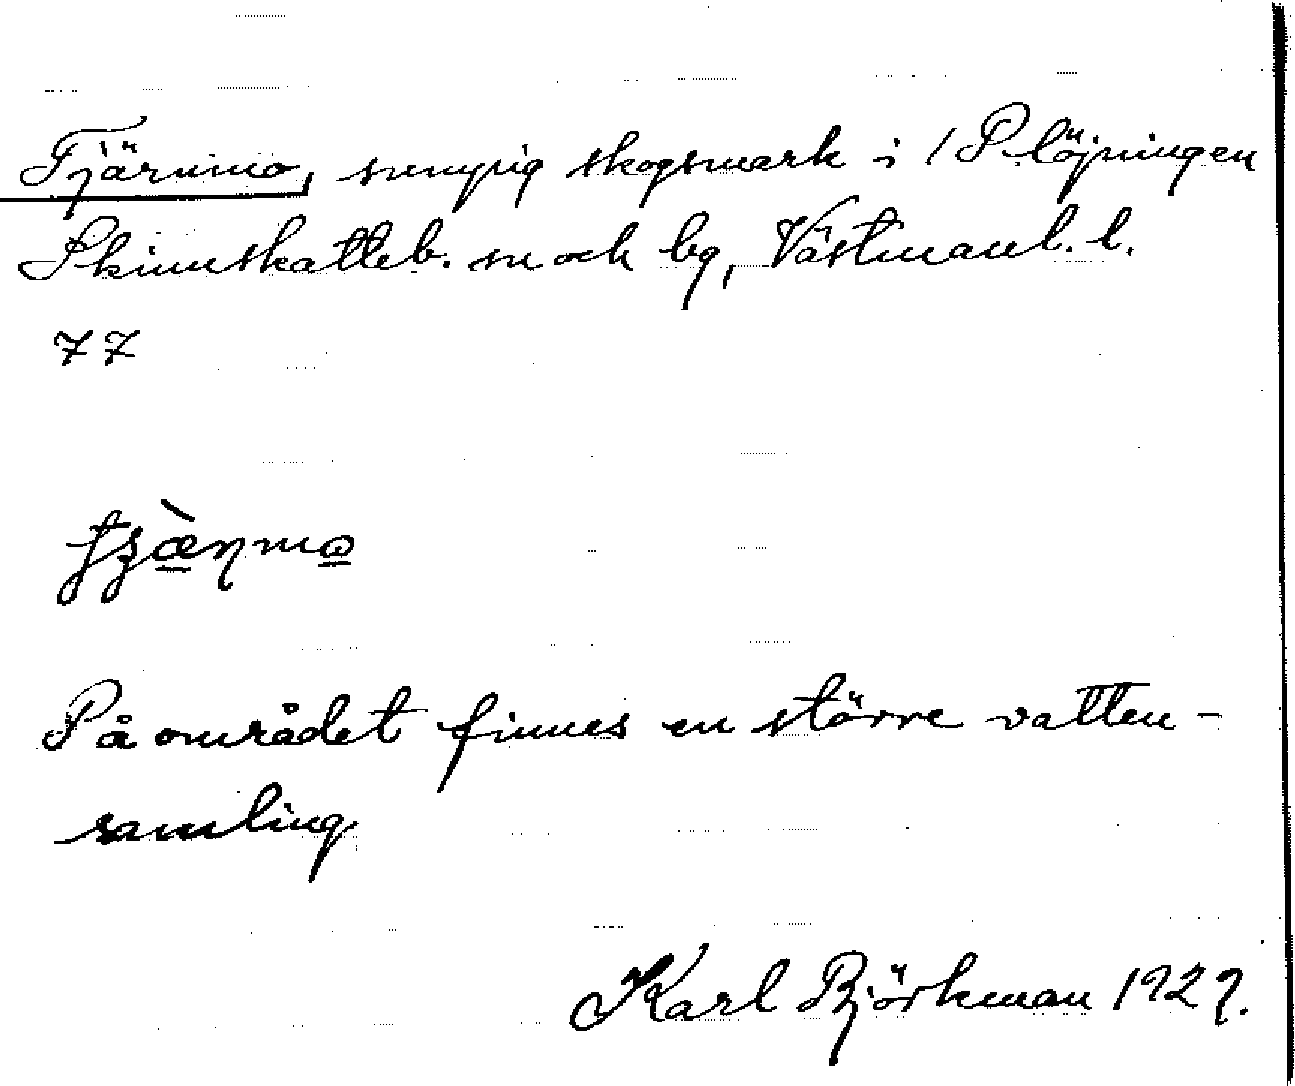 Tjärnmo, sumpig skogsmark i Plöjningen
Skinnskatteb. sn och bg, Västmanl. l.
77
På området finnes en större vatten-
samling
Karl Björkman 1927.